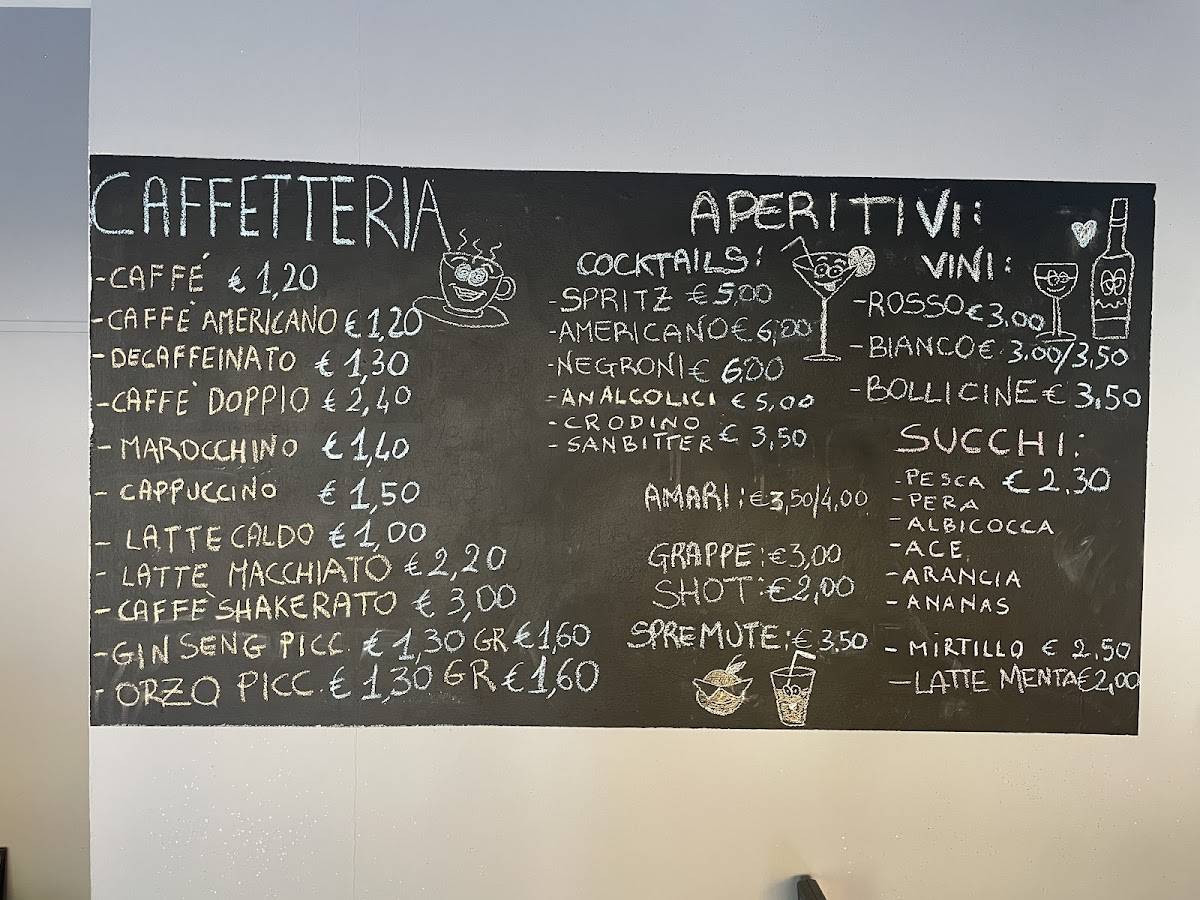 CAFFETTERIA
-CAFFÉ € 1,20
-CAFFÈ AMERICANO € 1,20
-DECAFFEINATO € 1,30
-CAFFÈ DOPPIO € 2,40
-MAROCCHINO € 1,40
- CAPPUCCINO € 1,50
- LATTE CALDO € 1,00
- LATTE MACCHIATO € 2,20
-CAFFÈ SHAKERATO € 3,00
-GINSENG PICC. € 1,30 GR € 1,60
- ORZO PICC. € 1,30 GR € 1,60
APERITIVI:
COCKTAILS:
-SPRITZ € 5,00
-AMERICANO € 6,00
-NEGRONI € 6.00
-ANALCOLICI € 5,00
-CRODINO
-SANBITTER € 3,50
AMARI: € 3,50/4,00
GRAPPE: € 3,00
SHOT: € 2,00
SPREMUTE: € 3.50
VINI:
-ROSSO € 3.00
-BIANCO € 3.00/3,50
-BOLLICINE € 3,50
SUCCHI:
-PESCA € 2.30
-PERA
-ALBICOCCA
-ACE
-ARANCIA
-ANANAS
- MIRTILLO € 2.50
-LATTE MENTA € 2,00